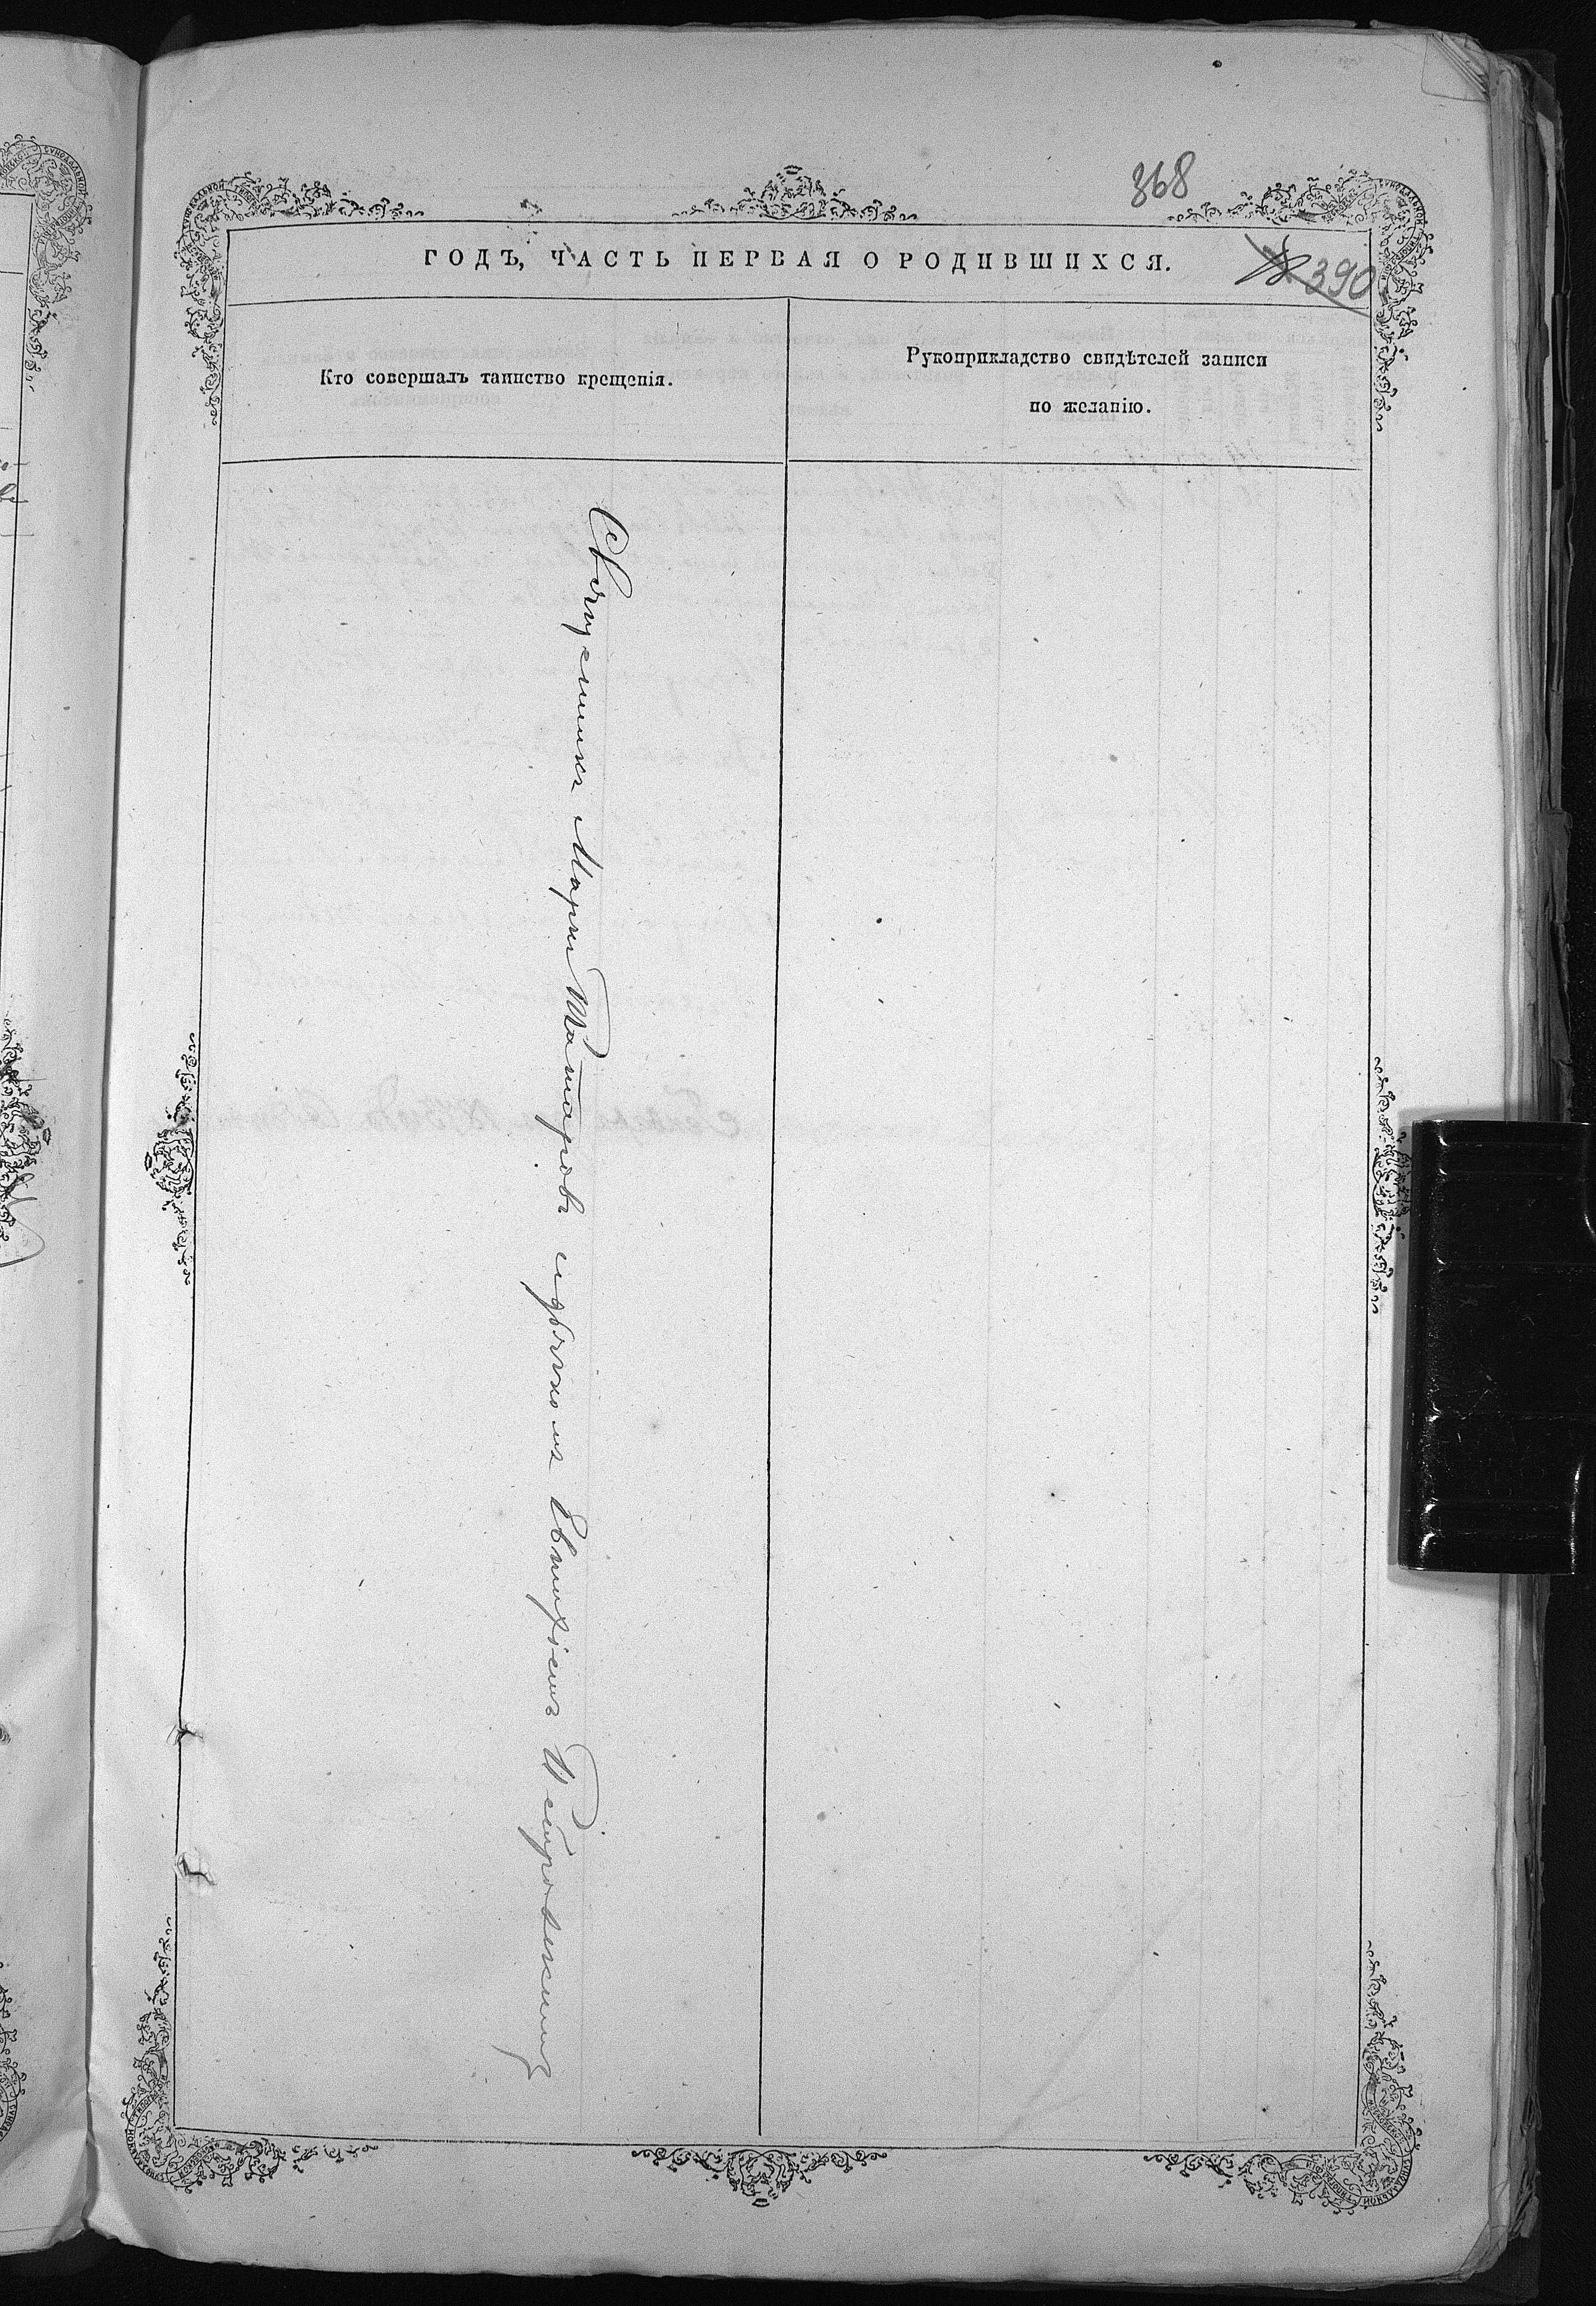 368
ГОДЪ, ЧАСТЬ ПЕРВАЯ О РОДИВШИХСЯ.
390
Кто совершалъ таинство крещенія.
Рукоприкладство свидѣтелей записи
по желанію.
Священникъ Марк Татаровъ съ дьячкомъ Евтихіемъ Петровскимъ